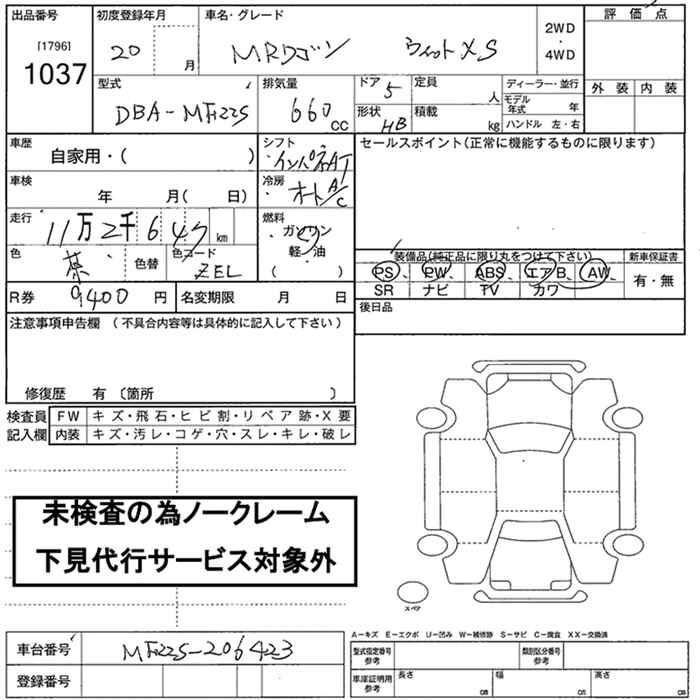 出品番号 初度登録年月 車名・グレード 評価点
[1796] 1037 20 月 MRワゴン ウィットXS 2WD・4WD 外装 内装
型式 排気量 ドア 定員 ディーラー・並行
DBA-MF22S 660 CC 5 人 モデル年式 年
形状 積載 HB kg ハンドル 左・右
車歴 シフト セールスポイント(正常に機能するものに限ります)
自家用・( ) インパネAT
車検 冷房
年 月( 日) オートA/C
走行 燃料
11万2千647 km ガソリン
軽 油
色 色替 色コード ( )
茶 ZEL
装備品(純正品に限り丸をつけて下さい) 新車保証書
PS、 PW、 ABS、 エアB、 AW、 有・無
SR ナビ TV カワ
R券 9,400 円 名変期限 月 日
後日品
注意事項申告欄 (不具合内容等は具体的に記入して下さい)
修復歴 有 〔箇所 〕
検査員 FW キズ・飛石・ヒビ割・リペア跡・X要
記入欄 内装 キズ・汚レ・コゲ・穴・スレ・キレ・破レ
未検査の為ノークレーム
下見代行サービス対象外
スペア
A−キズ E−エクボ U−凹み W−補修跡 S−サビ C−腐食 XX−交換済
車台番号 MF22S-206423
登録番号
型式指定番号 参考 類別区分番号 参考
車庫証明用 参考 長さ cm 幅 cm 高さ cm